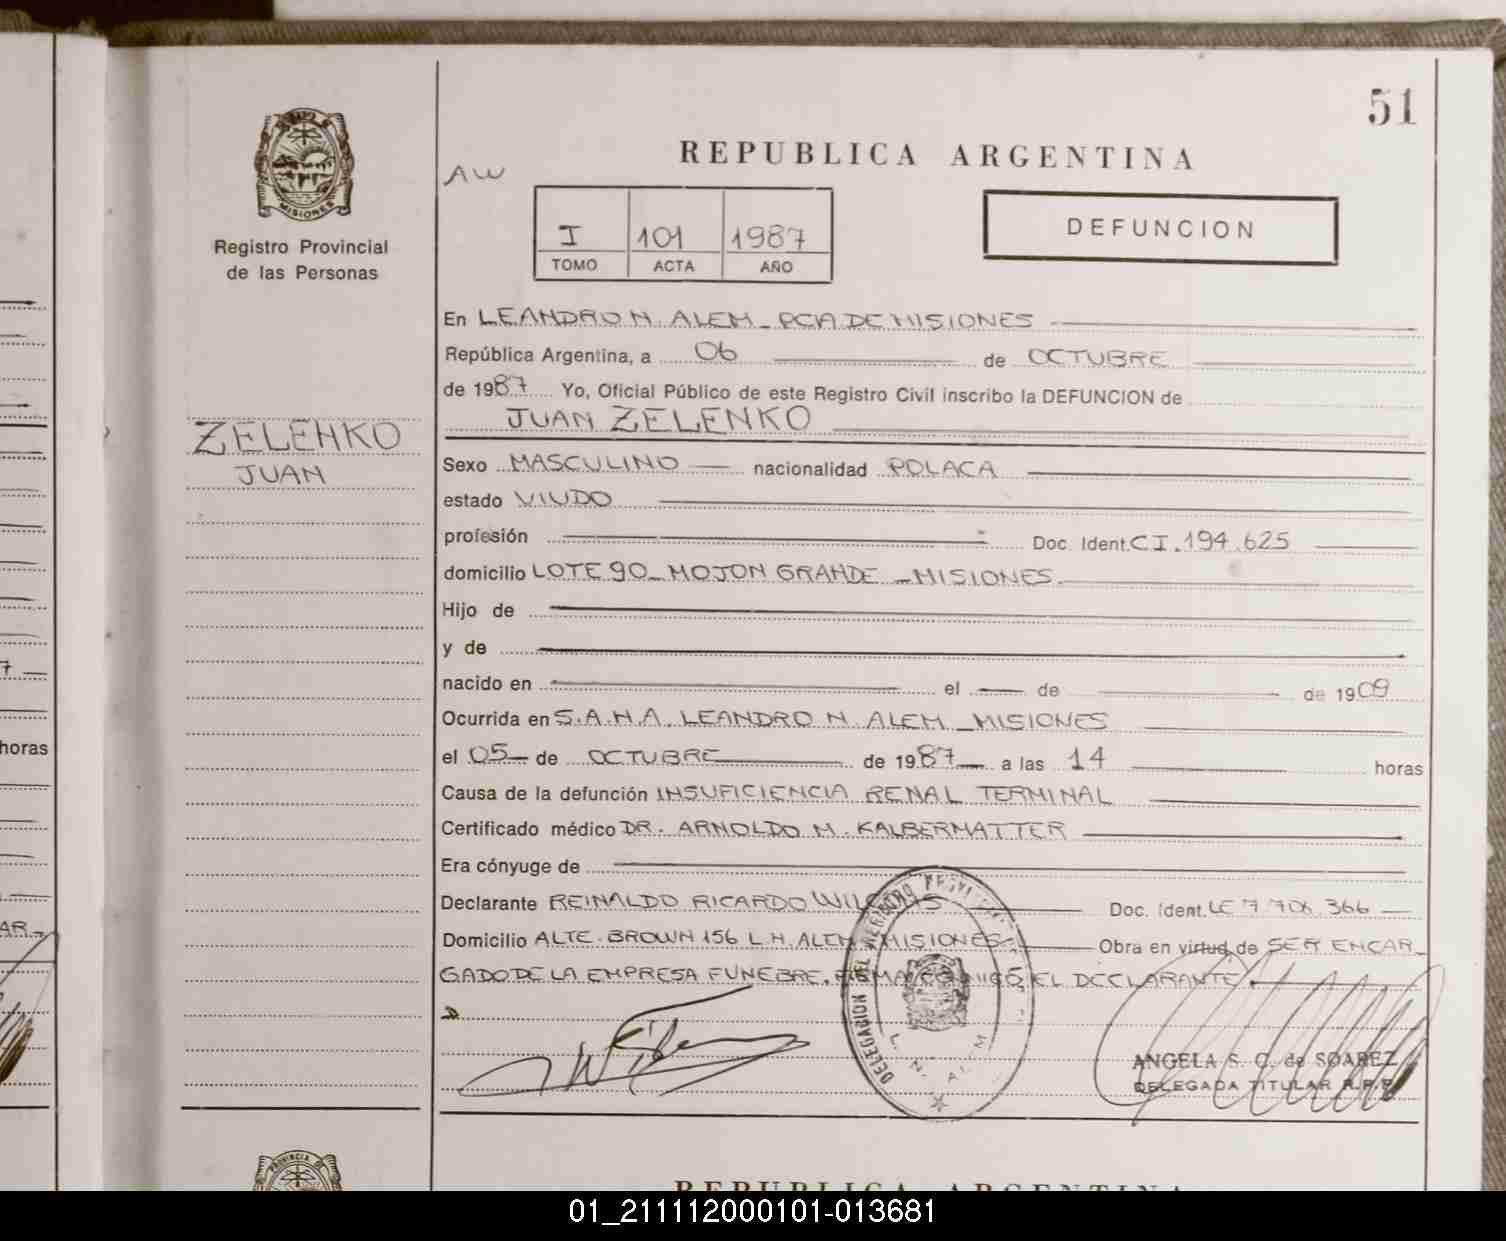 51
REPUBLICA ARGENTINA
AW
MISIONES
Registro Provincial
de las Personas
I 101 1987
TOMO ACTA AÑO
DEFUNCION
En LEANDRO N. ALEM - PCIA DE MISIONES
República Argentina, a 06 de OCTUBRE
de 1987 Yo, Oficial Público de este Registro Civil inscribo la DEFUNCION de
JUAN ZELENKO
ZELENKO
JUAN
Sexo MASCULINO nacionalidad POLACA
estado VIUDO
profesión Doc. Ident. CI. 194.625
domicilio LOTE 90 - MOJON GRANDE - MISIONES
Hijo de
y de
nacido en el de de 1909
Ocurrida en S.A.M.A. LEANDRO N. ALEM - MISIONES
el 05 de OCTUBRE de 1987 a las 14 horas
Causa de la defunción INSUFICIENCIA RENAL TERMINAL
Certificado médico DR. ARNOLDO M. KALBERMATTER
Era cónyuge de
Declarante REINALDO RICARDO Doc. Ident. LE 7.706.366
Domicilio ALTE. BROWN 156 L.N. ALEM MISIONES Obra en virtud de SER ENCAR
GADO DE LA EMPRESA FUNEBRE. FIRMA CONMIGO EL DECLARANTE.
DELEGACION DEL
L. N. ALEM
ANGELA S. C. de SOAREZ
DELEGADA TITULAR R.P.P.
horas
7
AR.
PROVINCIA
REPUBLICA ARGENTINA
01_211112000101-013681